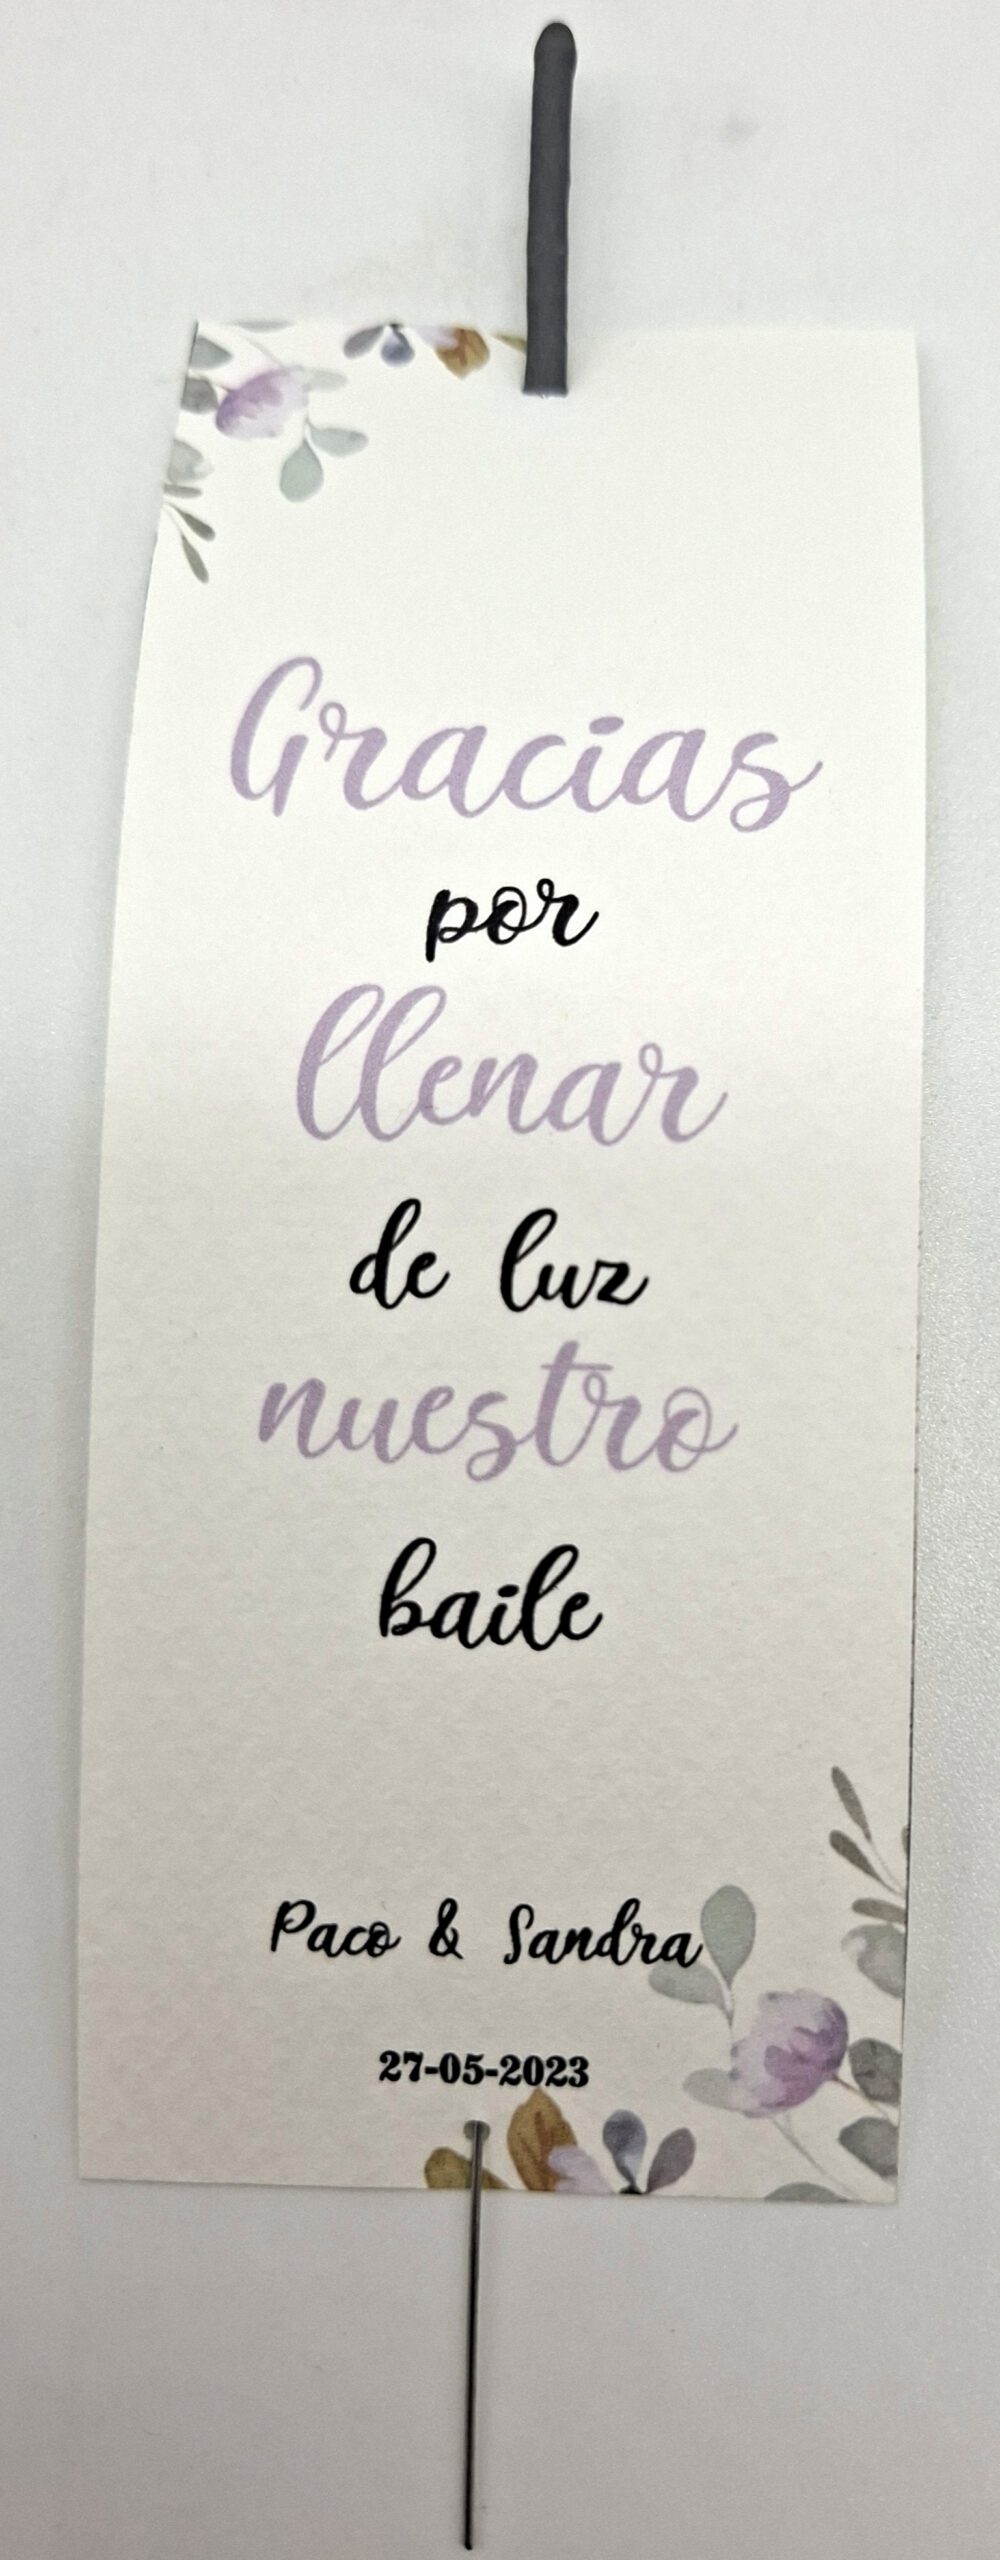 Gracias
por
llenar
de luz
nuestro
baile
Paco & Sandra
27-05-2023